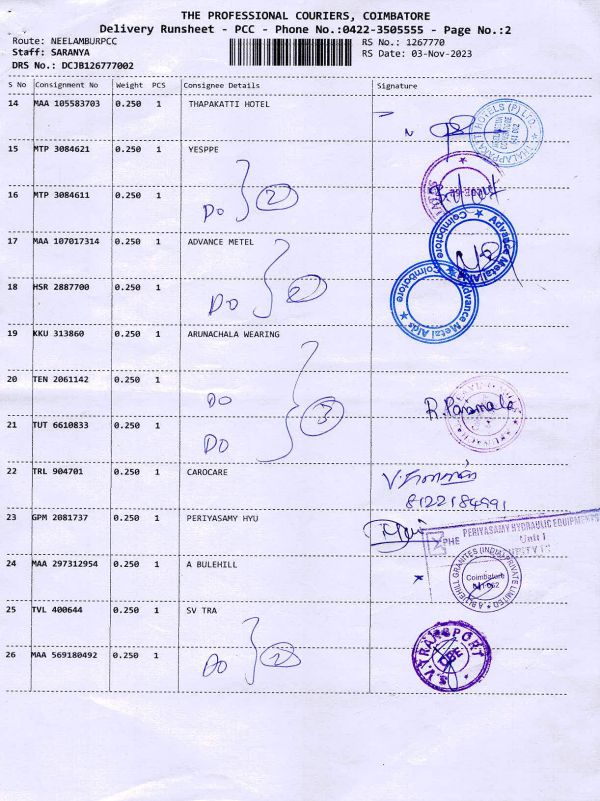 THE PROFESSIONAL COURIERS, COIMBATORE
Delivery Runsheet - PCC - Phone No.:0422-3505555 - Page No.:2
Route: NEELAMBURPCC RS No.: 1267770
Staff: SARANYA RS Date: 03-Nov-2023
DRS No.: DCJB126777002
S No Consignment No Weight PCS Consignee Details Signature
14 MAA 105583703 0.250 1 THAPAKATTI HOTEL
15 MTP 3084621 0.250 1 YESPPE
16 MTP 3084611 0.250 1
DO 2
17 MAA 107017314 0.250 1 ADVANCE METEL
Advance Metal Aids Coimbatore
18 HSR 2887700 0.250 1
DO 2
Advance Metal Aids Coimbatore
19 KKU 313860 0.250 1 ARUNACHALA WEARING
20 TEN 2061142 0.250 1
DO
R. Parimala
21 TUT 6610833 0.250 1
DO 3
22 TRL 904701 0.250 1 CAROCARE
8122184991
23 GPM 2081737 0.250 1 PERIYASAMY HYU
PHE PERIYASAMY HYDRAULIC EQUIPMENTS
Unit I
24 MAA 297312954 0.250 1 A BULEHILL
A BLUEHILL GRANTES (INDIA) PRIVATE LIMITED
Coimbatore
25 TVL 400644 0.250 1 SV TRA
S.V. TRANSPORT
CBE
26 MAA 569180492 0.250 1
DO 2